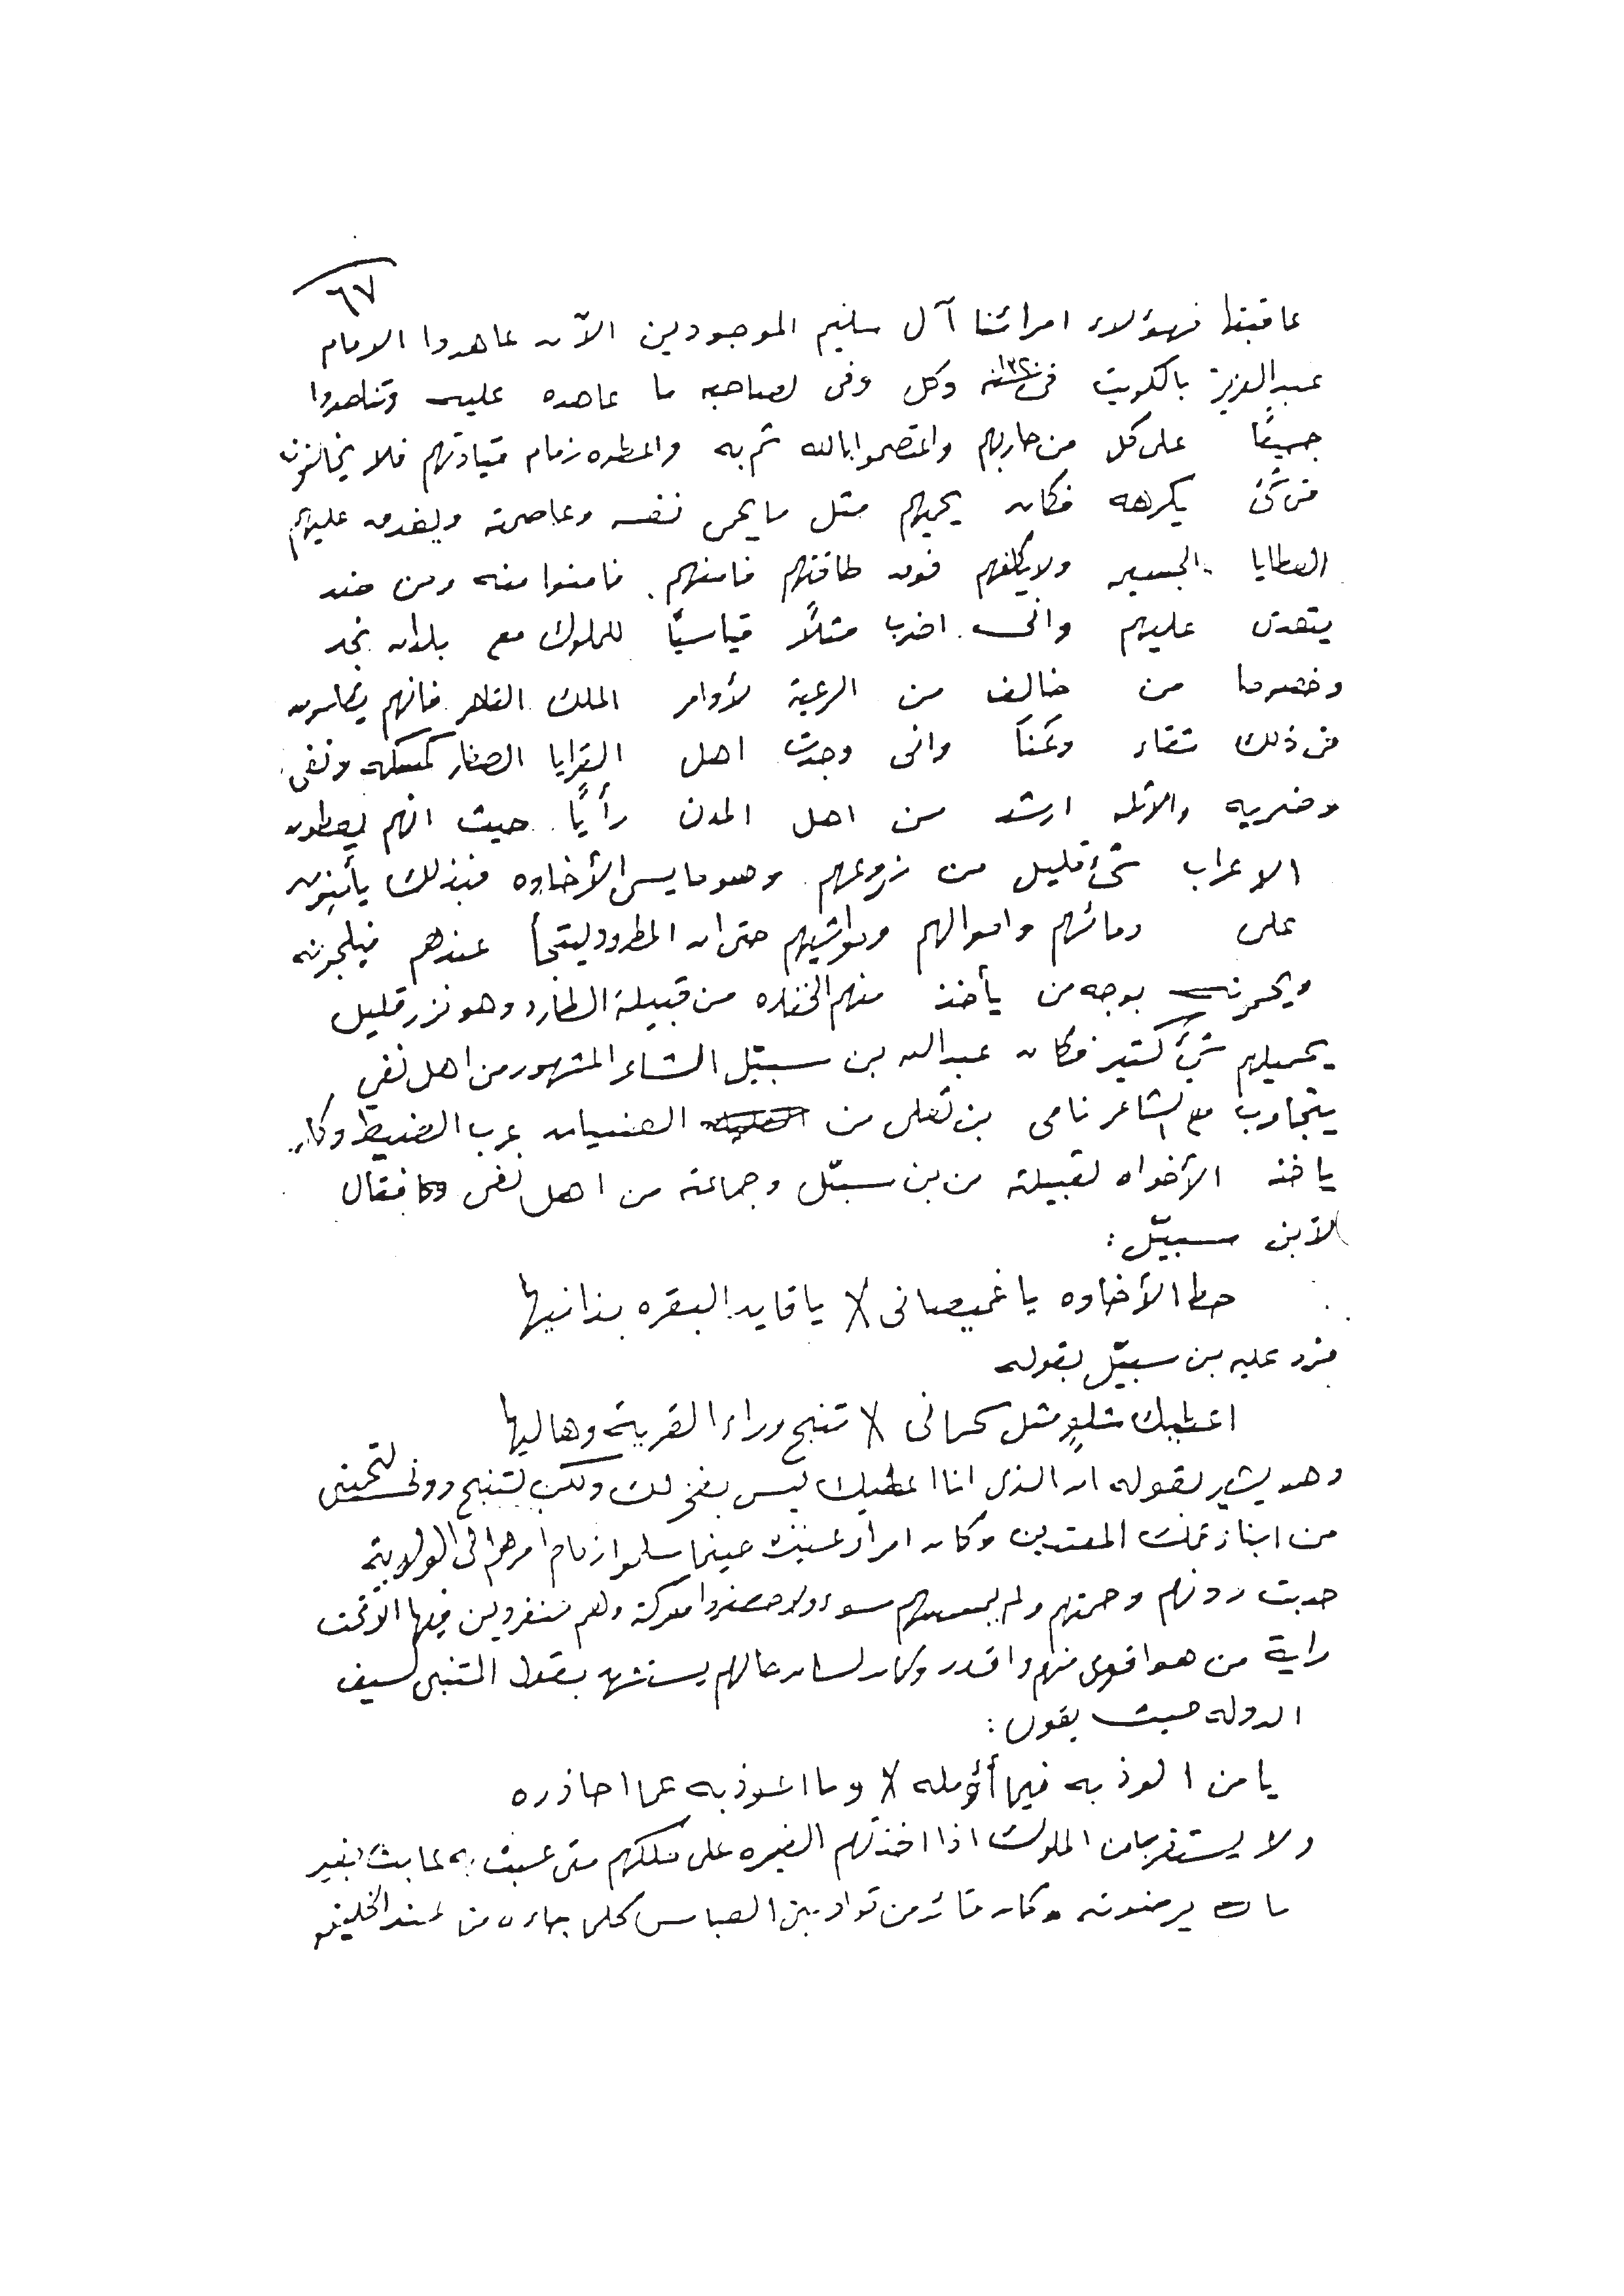 ٦٧
عاقبتها فهؤلاء امرائنا آل سليم الموجودين الآن عاهدوا الامام
عبدالعزيز بالكويت في سنة وكل وفى لصاحبه ما عاهده عليه وتناهدوا
جميعًا على كل من حاربهم واعتصموا بالله ثم به واعطوه زمام قيادتهم فلا يخالفونه
في شئ يكرهه فكان يحميهم مثل ما يحمي نفسه وعاصمته ويغدق عليهم
العطايا الجسيمه ولا يكلفهم فوق طاقتهم فامنهم فامنوا منه ومن ضد
يتعدى عليهم واني اضرب مثلًا قياسيًا للملوك مع بلدان نجد
وخصوصا من خالف من الرعية لأوامر الملك القاهر فانهم يقاسون
من ذلك شقاء وعَنَاً واني وجدت اهل القرايا الصغار كمسكه ونفي
وضريه والاثله ارشد من اهل المدن رأيًا حيث انهم يعطون
الاعراب شئ قليل من زروعهم وهو ما يسمى الأخاوه فبذلك يأمنون
على دمائهم واموالهم ومواشيهم حتى ان المطرود ليلتجأ عندهم فيلجونه
ويحمونه بوجه من يأخذ منهم الخفاره من قبيلة الطارد وهو نزر قليل
يحميلهم شئ كثير فكان عبدالله بن سبيّل الشاعر المشهور من اهل نفي
يتجاوب مع الشاعر نامي بن ثعلي من العضيان عرب الضيط وكان
ياخذ الأخواه لقبيلته من بن سبيّل وجماعته من اهل نفي فقال
لآبن سبيّل :
حط الأخاوه يا غميصاني \\ يا قايد البقره بذانيها
فرد عليه بن سبيّل بقوله
اعطيك شلوٍ مثل كحراني \\ تنبح وراء القرية وهاليها
وهو يشير بقوله ان الذي انا اعطيك ليس بفخر لك ولكن لتنبح دوني لتحميني
من ابناء عمك المعتدين وكان امراء عنيزة حينما سلموا زمام امرهم الى الولاية
حدبت دونهم وحمتهم ولم يمسسهم سوء ولا حضروا معركة وهم منفردين فيها الا تحت
راية من هو اقوى منهم واقدر وكان لسان حالهم يستشهد بقول المتنبي لسيف
الدوله حيث يقول :
يا من الوذ به فيما أؤمله \\ وما اعوذ به عما احاذره
ولا يستغرب من الملوك اذا اخذتهم الغيره على ملكهم متى عبث به عابث بغير
ما يرضونه وكان قائد من قواد بني العباس كلما جاءه من عند الخليفه